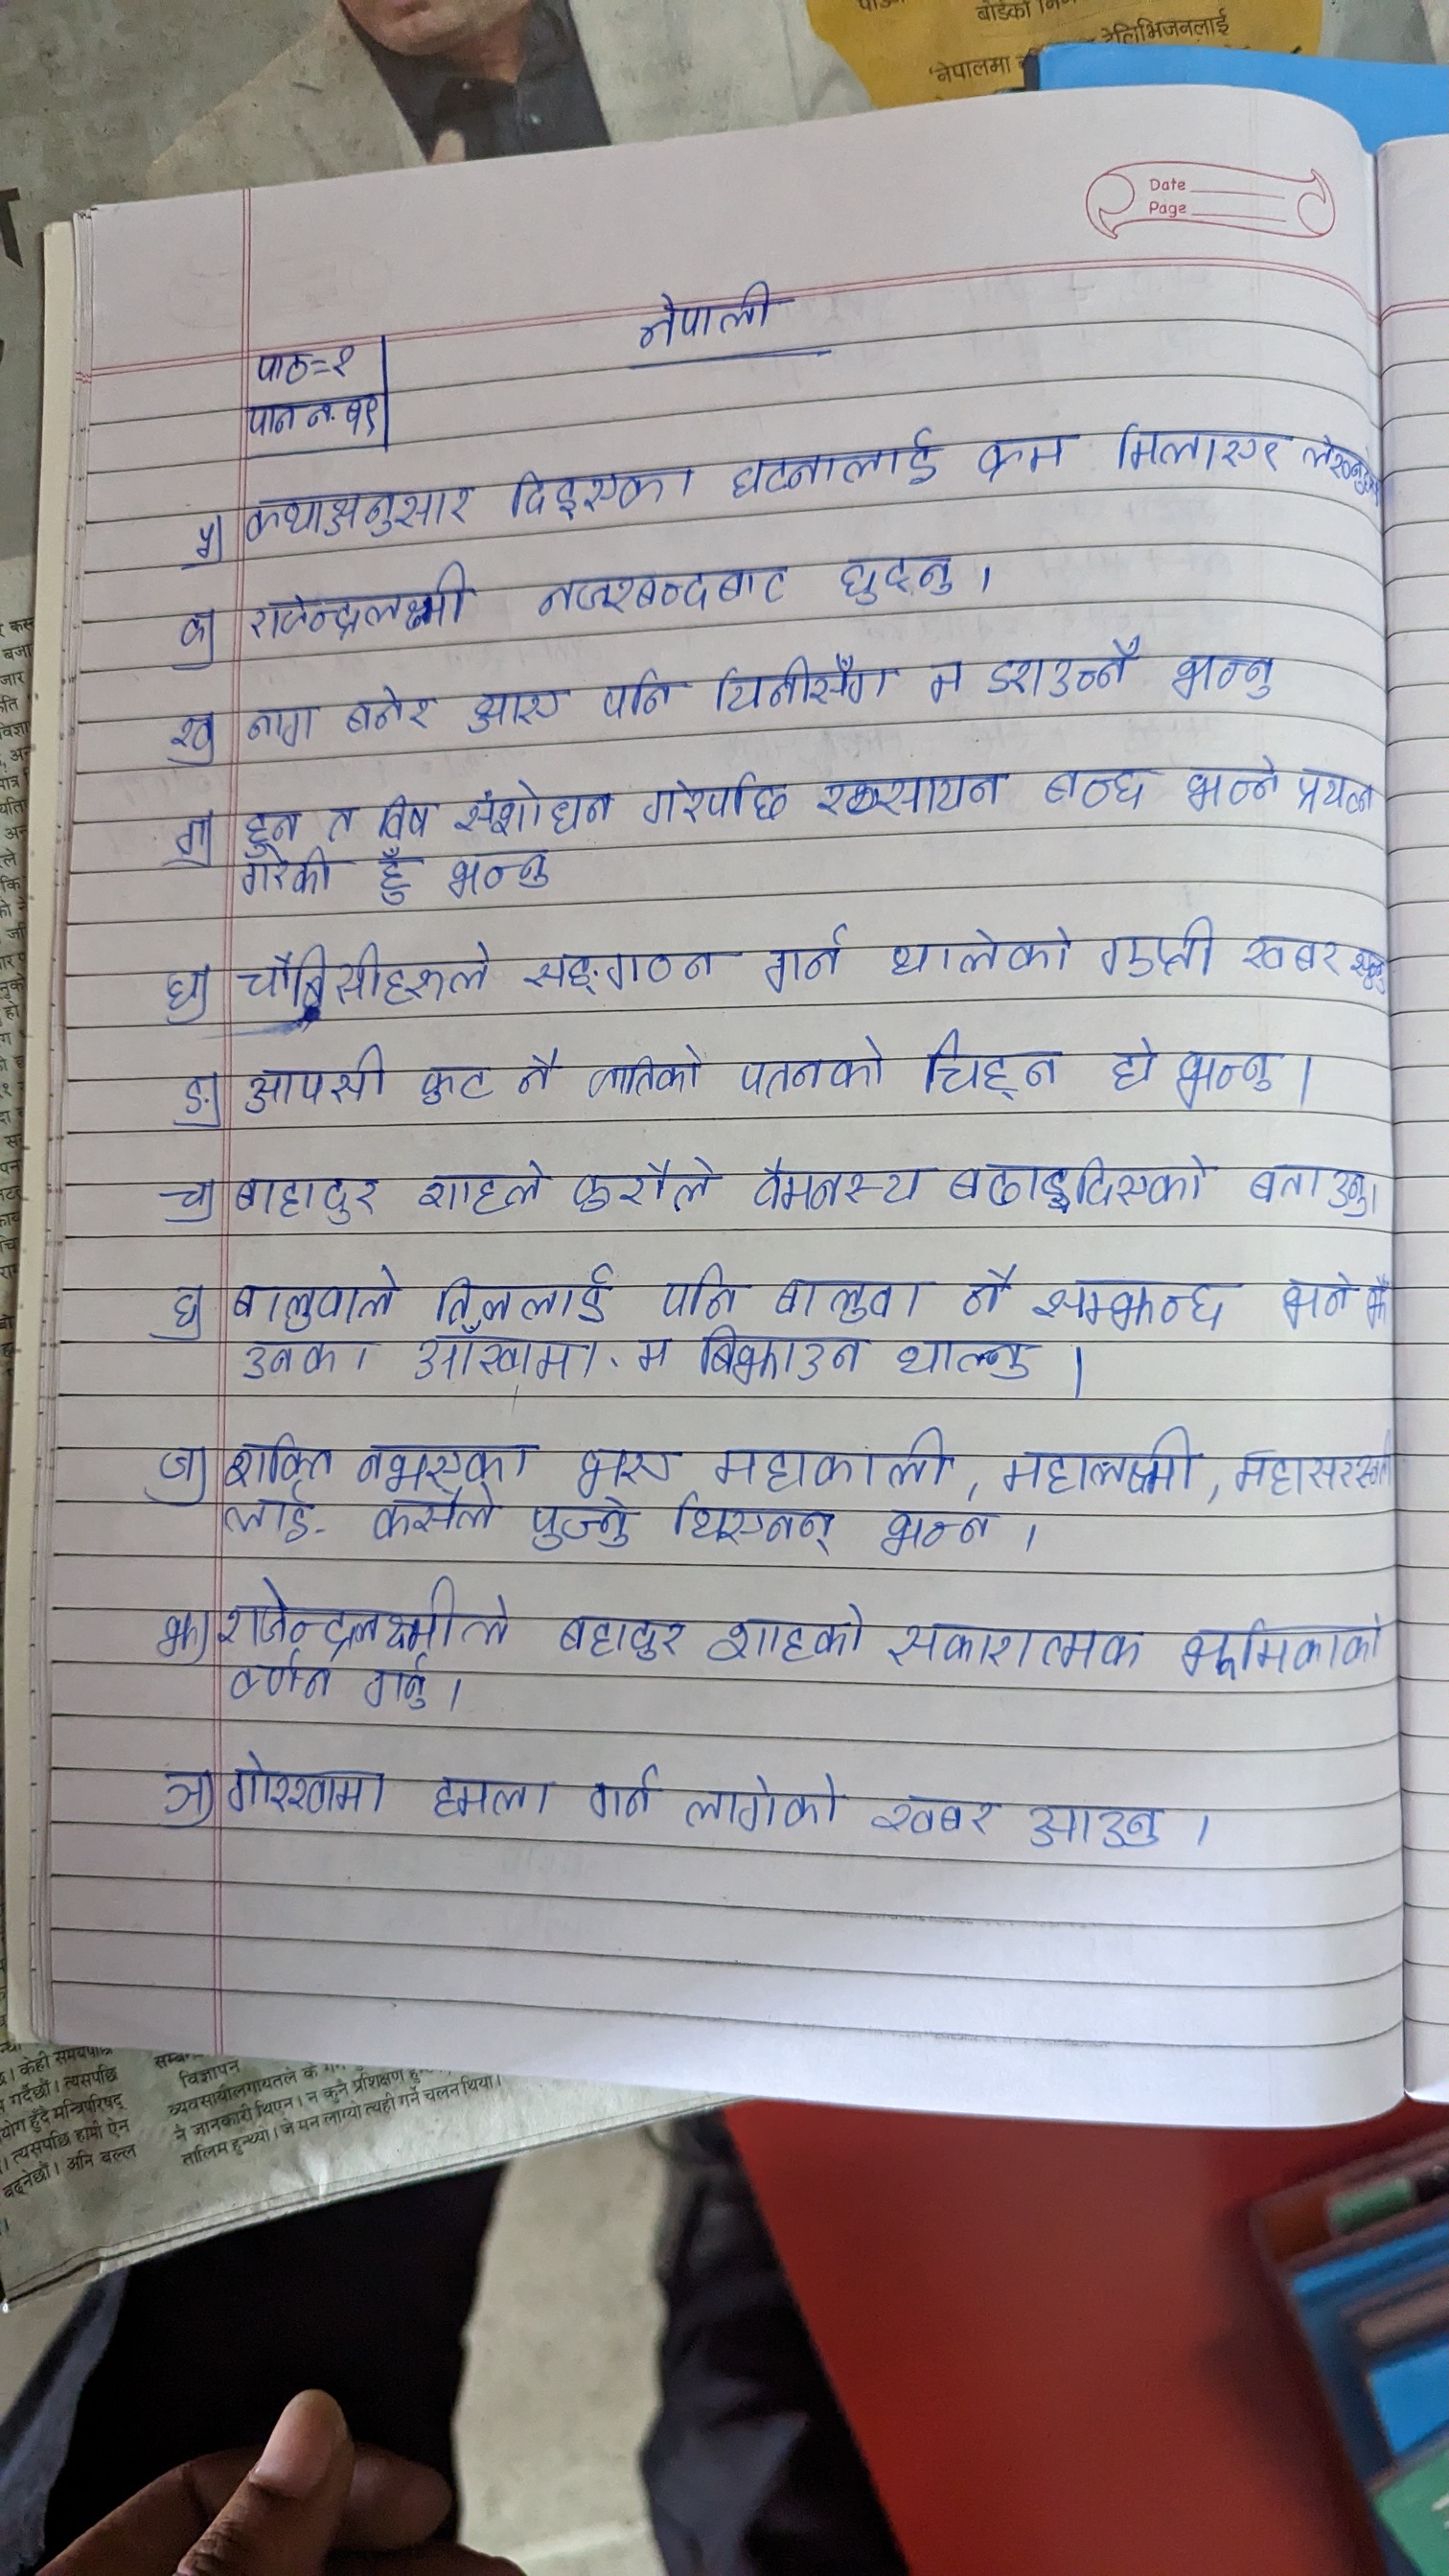 बोर्डको
टेलिभिजनलाई
'नेपालमा
Date
Page
नेपाली
पाठ=१
पान न. १९
५) कथाअनुसार दिइएका घटनालाई क्रम मिलाएर
क) राजेन्द्रलक्ष्मी नजरबन्दबाट छुट्नु।
ख) नाग बनेर आए पनि यिनीसँग म डराउन्नँ भन्नु
ग) हुन त विष संशोधन गरेपछि रसायन बन्छ भन्ने प्रयत्न
गरेकी हुँ भन्नु
घ) चौबिसीहरूले सङ्गठन गर्न थालेको गुप्ती खबर
ङ) आपसी फुट नै जातिको पतनको चिह्न हो भन्नु।
च) बाहादुर शाहले कुरौले वैमनस्य बढाइदिएको बताउनु।
छ) बालुवाले तिललाई पनि बालुवा नै सम्झन्छ भने झैं
उनका आँखामा म बिझाउन थाल्नु।
ज) शक्ति नभएका भए महाकाली, महालक्ष्मी, महासरस्वती
लाई कसैले पुज्ने थिएनन् भन्न।
झ) राजेन्द्रलक्ष्मीले बहादुर शाहको सकारात्मक भूमिकाको
वर्णन गर्नु।
ञ) गोरखामा हमला गर्न लागेको खबर आउनु।
केही समयपछि
गर्दैछौं। त्यसपछि
हुँदै मन्त्रिपरिषद्
। त्यसपछि हामी ऐन
बढ्नेछौं। अनि बल्ल
विज्ञापन
व्यवसायीलगायतले
ने जानकारी थिएन। न कुनै प्रशिक्षण
तालिम हुन्थ्यो। जे मन लाग्यो त्यही गर्ने चलन थियो।